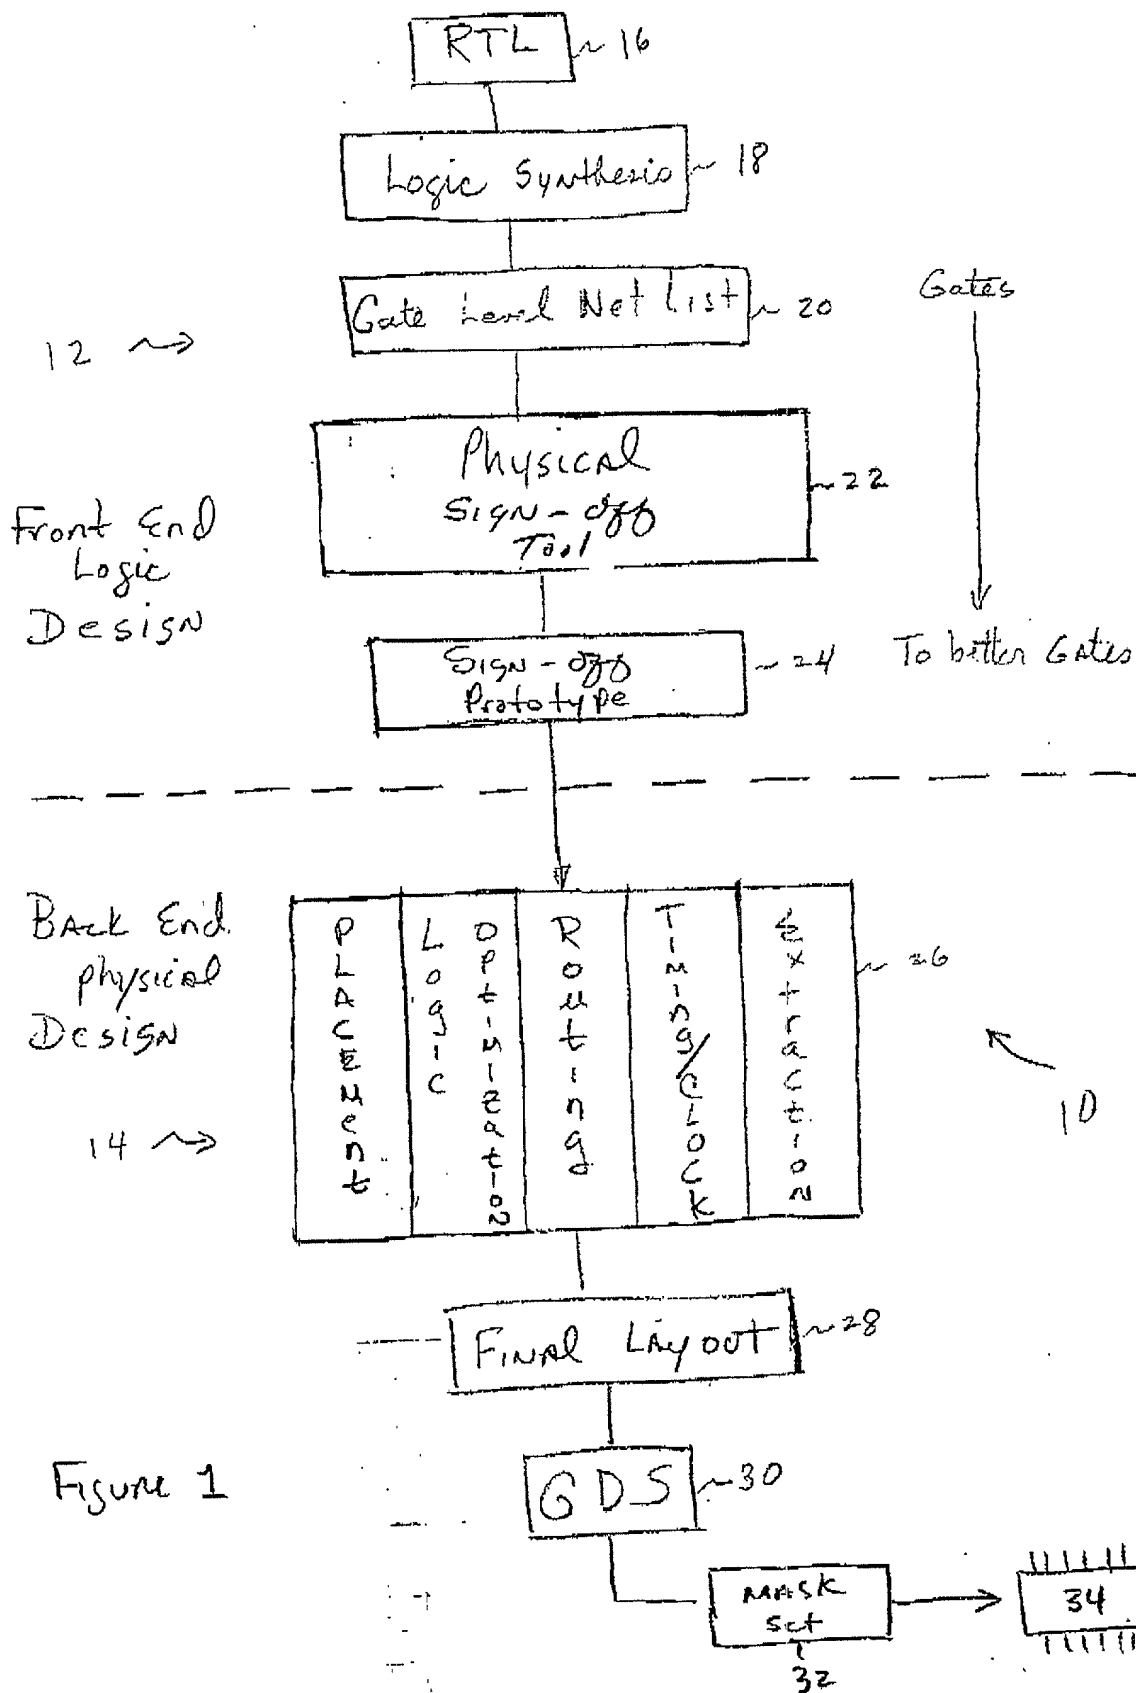 RTL 16
Logic Synthesis 18
Gate Level Net List 20
Gates
12
Physical
Sign-off
Tool
22
Front End
Logic
Design
Sign-off
Prototype
24
To better Gates
Back End
physical
Design
14
Placement
Logic
Optimization
Routing
Timing/Clock
Extraction
26
10
Final Layout 28
GDS 30
Figure 1
Mask
Set
32
34